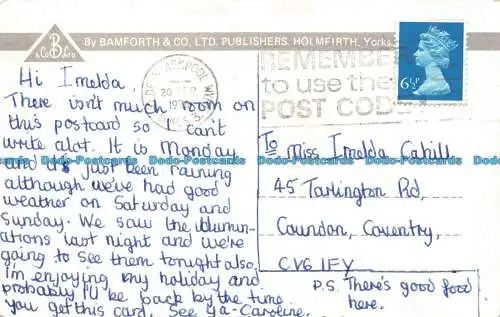 By BAMFORTH & CO. LTD. PUBLISHERS. HOLMFIRTH, Yorks.
B
& Co Ltd
BLACKPOOL
20 SEP
REMEMBER
to use the
POST CODE
6½P
Hi Imelda,
There isn't much room on
this postcard so I can't
write alot. It is Monday
and it's just been raining
although we've had good
weather on Saturday and
Sunday. We saw the illumin-
ations last night and we're
going to see them tonight also.
I'm enjoying my holiday and
probably I'll be back by the time
you get this card. See ya - Caroline.
To Miss Imelda Cahill
45 Tarlington Rd,
Coundon, Coventry,
CV6 1FY
P.S. There's good food
here.
Dodo-Postcards Dodo-Postcards Dodo-Postcards Dodo-Postcards